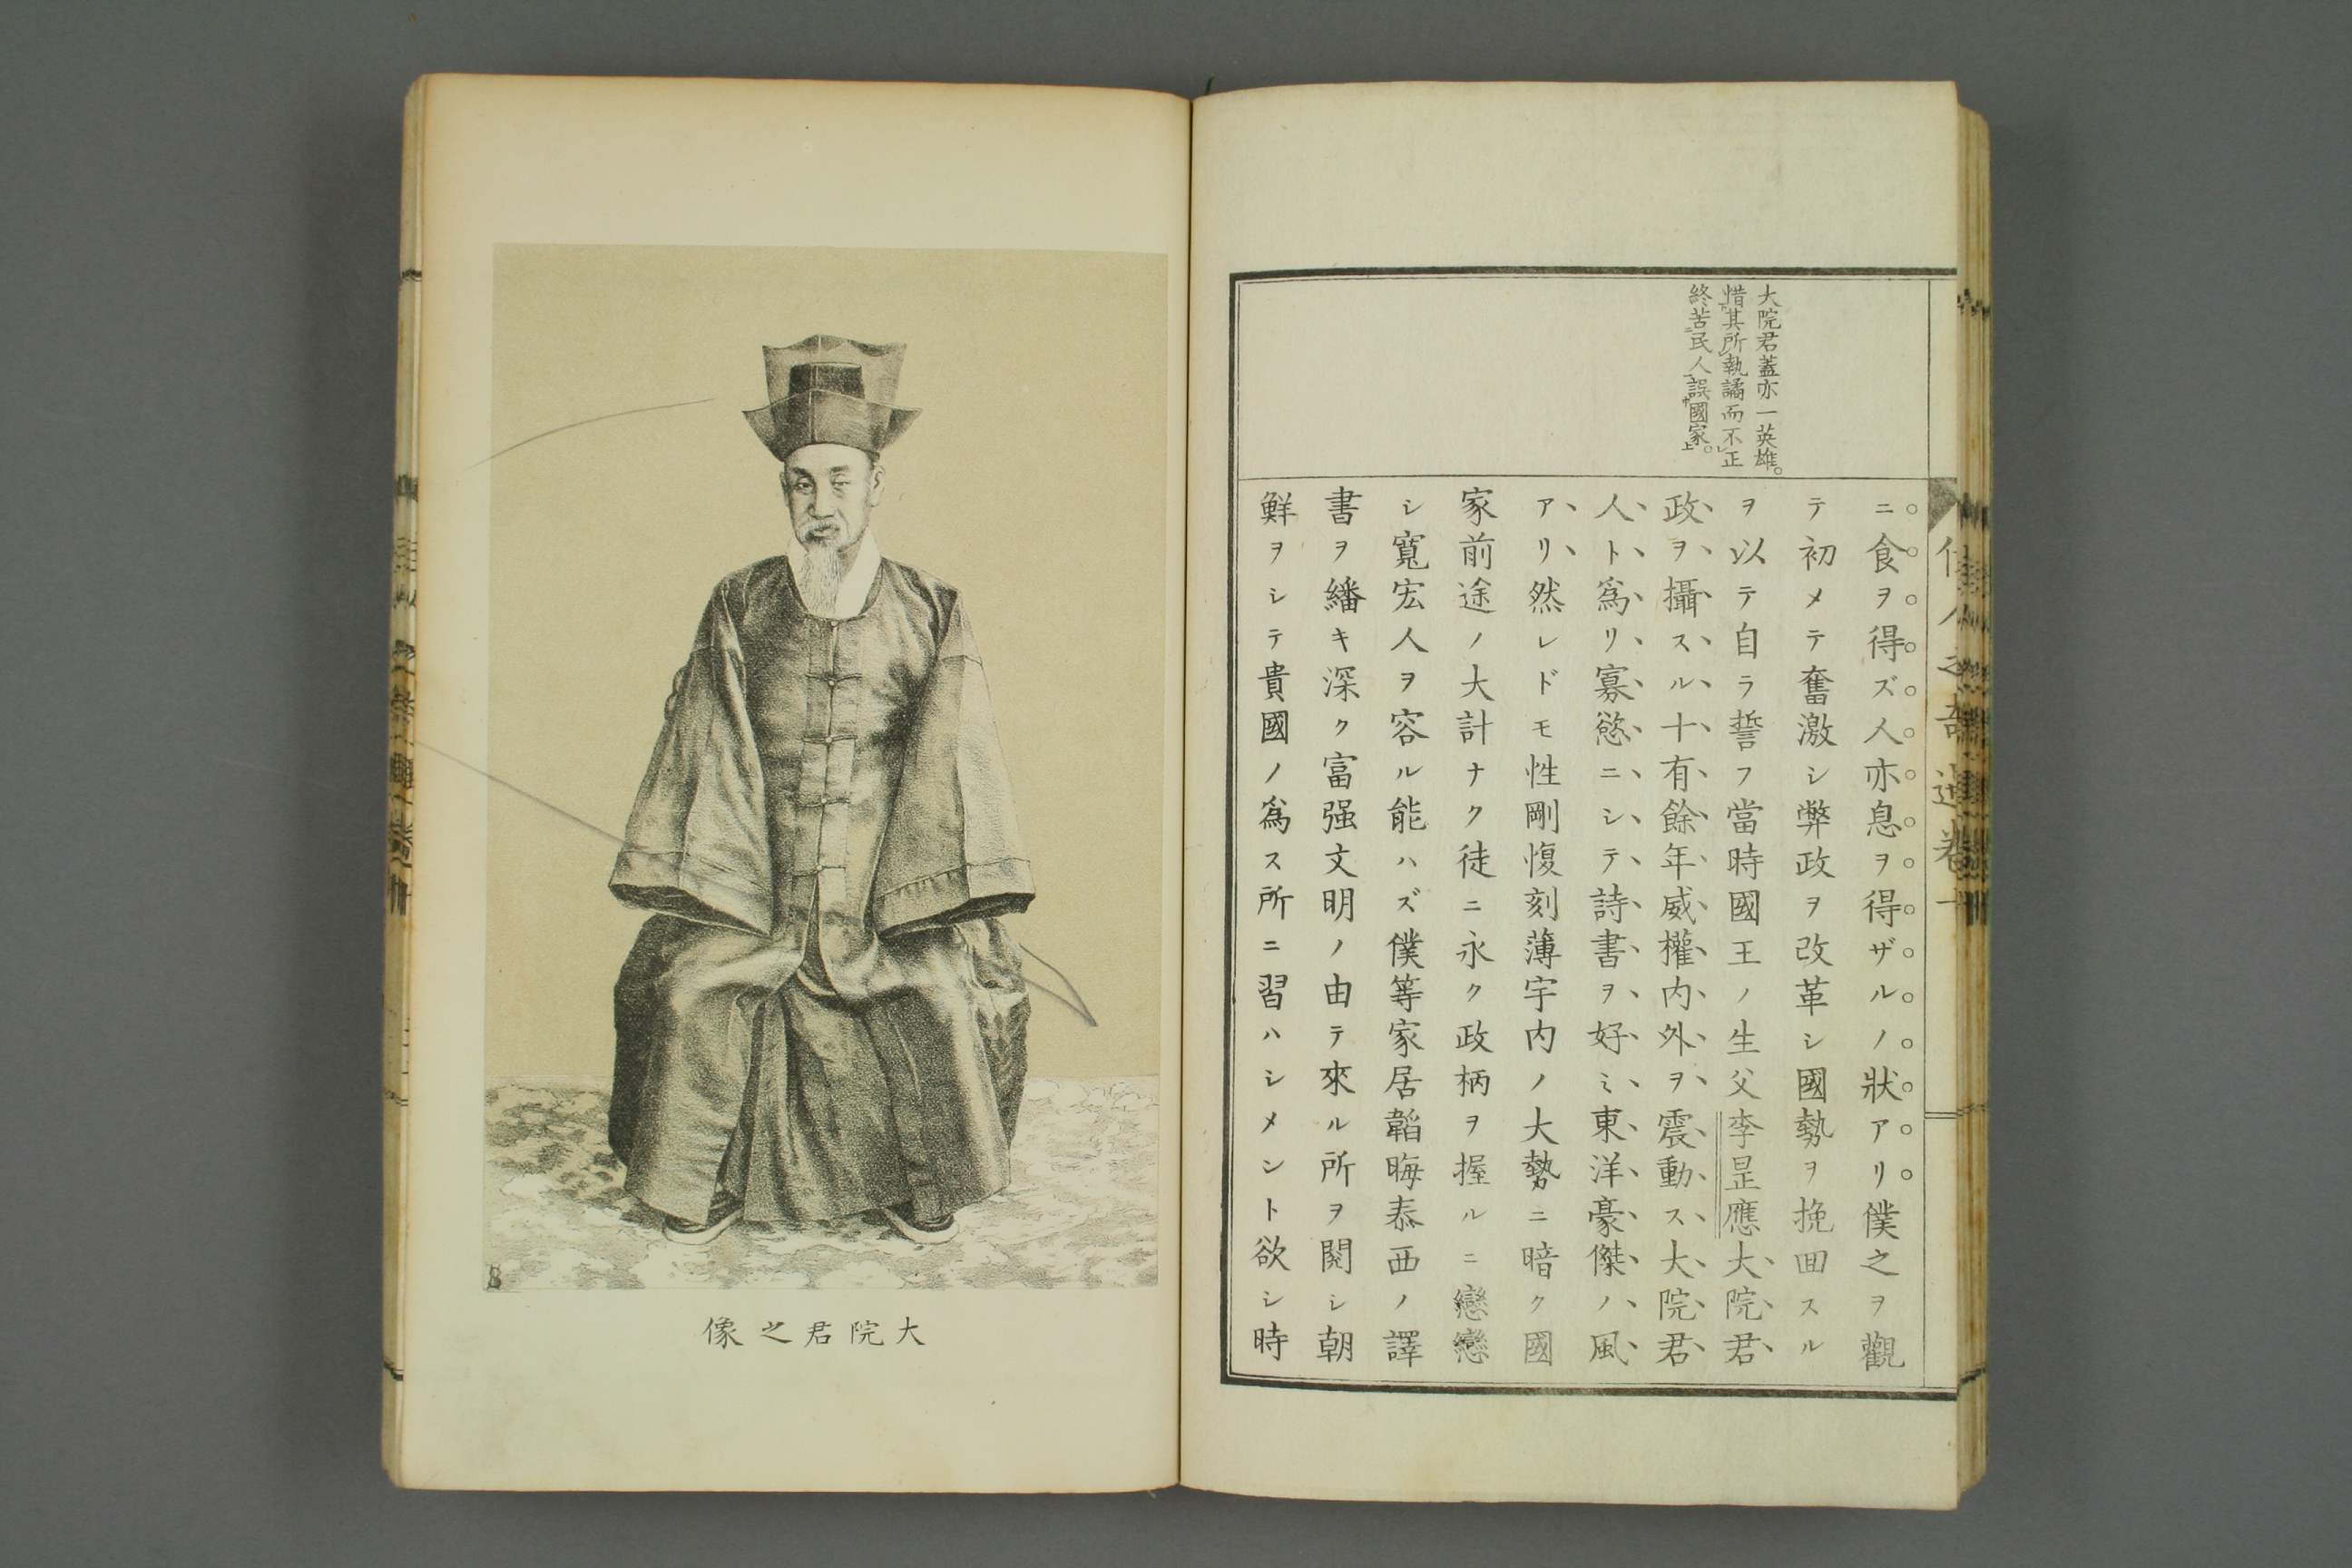 大院君蓋亦一英雄。
惜其所執譎而不正
終苦民人誤國家。
ニ食ヲ得ズ人亦息ヲ得ザルノ狀アリ僕之ヲ觀
テ初メテ奮激シ弊政ヲ改革シ國勢ヲ挽回スル
ヲ以テ自ラ誓フ當時國王ノ生父李昰應大院君
政ヲ攝スル十有餘年威權內外ヲ震動ス大院君
人ト爲リ寡慾ニシテ詩書ヲ好ミ東洋豪傑ノ風
アリ然レドモ性剛愎刻薄宇內ノ大勢ニ暗ク國
家前途ノ大計ナク徒ニ永ク政柄ヲ握ルニ戀戀
シ寬宏人ヲ容ル能ハズ僕等家居韜晦泰西ノ譯
書ヲ繙キ深ク富强文明ノ由テ來ル所ヲ閱シ朝
鮮ヲシテ貴國ノ爲ス所ニ習ハシメント欲シ時
大院君之像